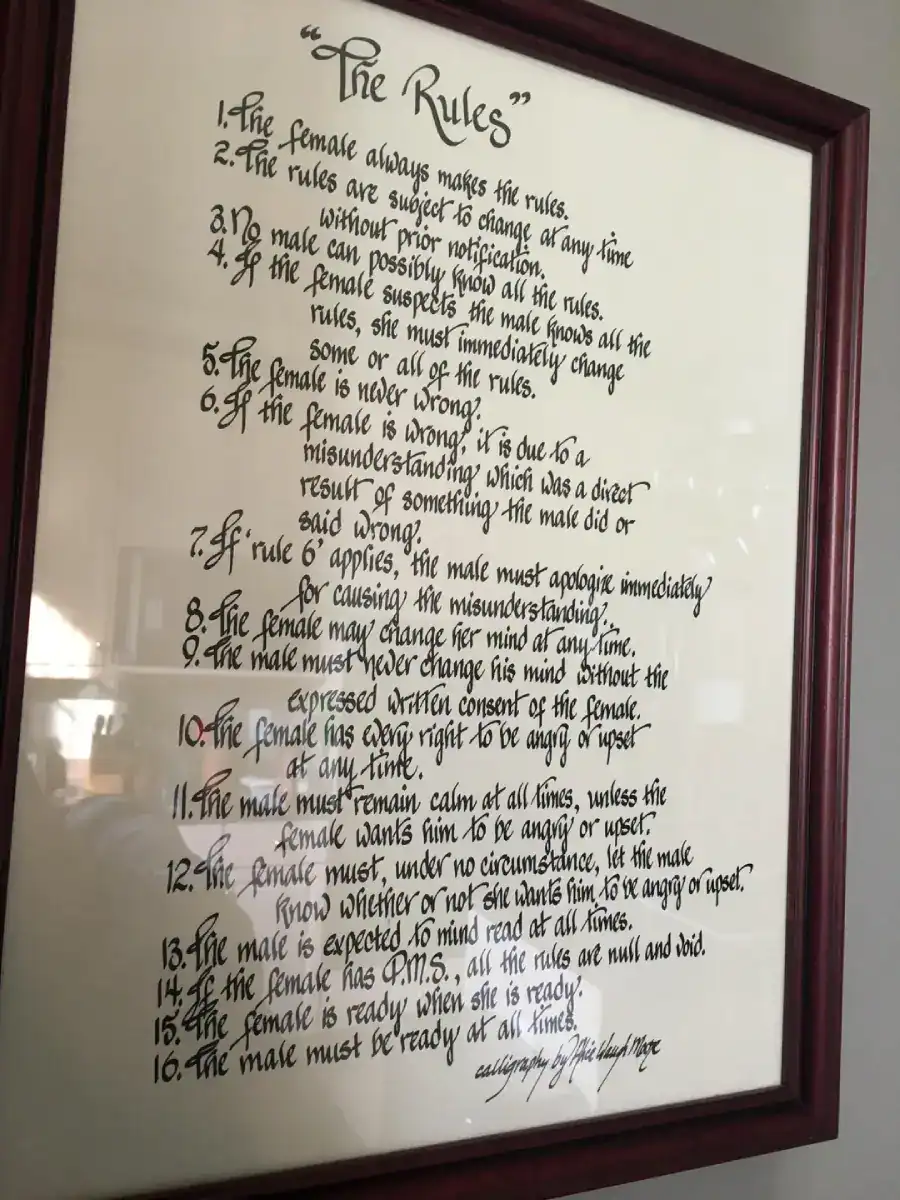 “The Rules”
1. The female always makes the rules.
2. The rules are subject to change at any time
without prior notification.
3. No male can possibly know all the rules.
4. If the female suspects the male knows all the
rules, she must immediately change
some or all of the rules.
5. The female is never wrong.
6. If the female is wrong, it is due to a
misunderstanding which was a direct
result of something the male did or
said wrong.
7. If ‘rule 6’ applies, the male must apologize immediately
for causing the misunderstanding.
8. The female may change her mind at any time.
9. The male must never change his mind without the
expressed written consent of the female.
10. The female has every right to be angry or upset
at any time.
11. The male must remain calm at all times, unless the
female wants him to be angry or upset.
12. The female must, under no circumstance, let the male
know whether or not she wants him to be angry or upset.
13. The male is expected to mind read at all times.
14. If the female has P.M.S., all the rules are null and void.
15. The female is ready when she is ready.
16. The male must be ready at all times.
calligraphy by